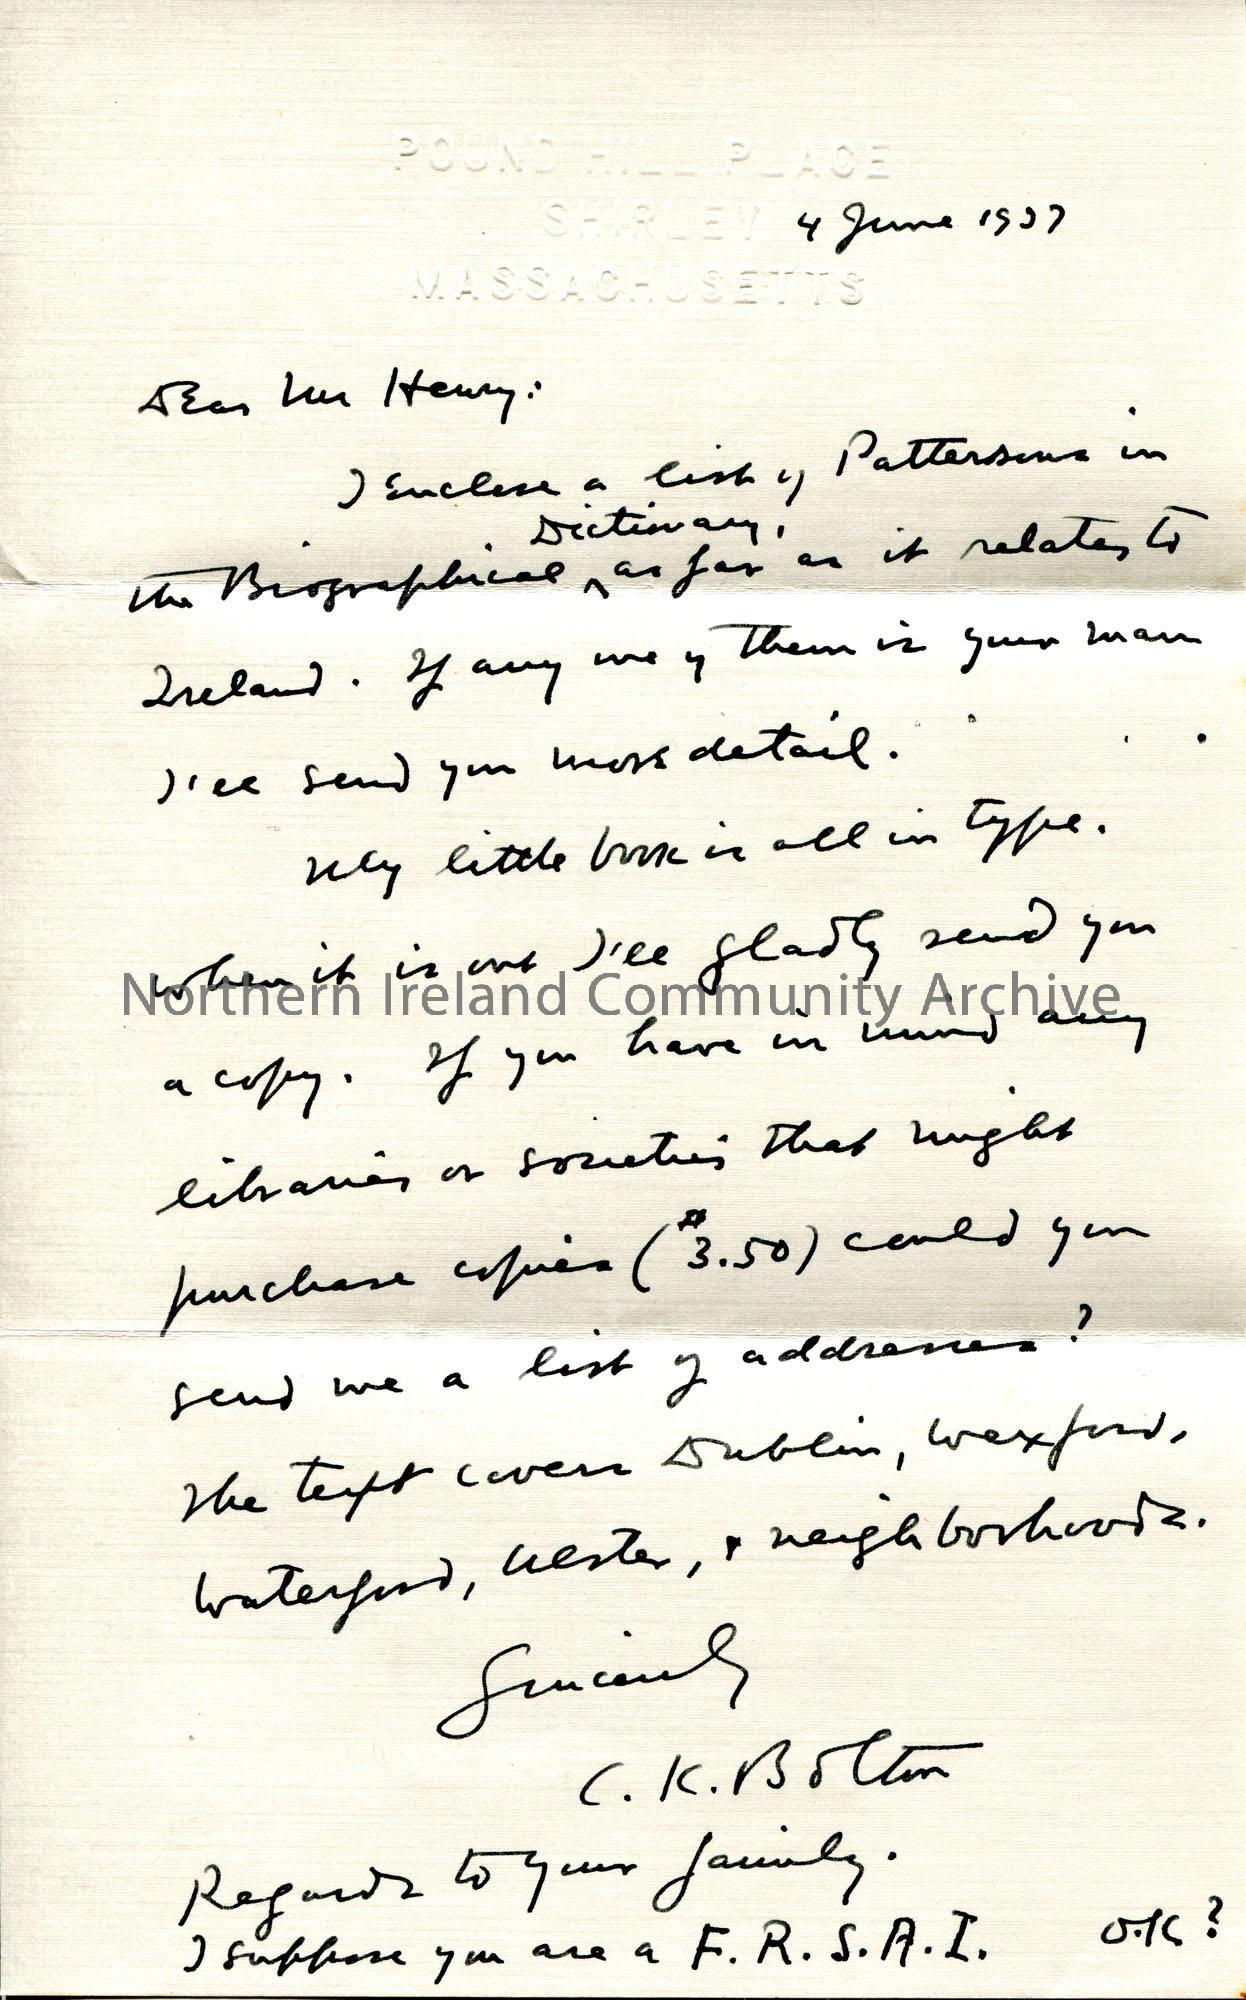 POUND HILL PLACE
SHIRLEY
MASSACHUSETTS
4 June 1937
Dear Mr Henry:
I enclose a list of Pattersons in
the Biographical Dictionary, as far as it relates to
Ireland. If any one of them is your man
I'll send you more detail.
My little book is all in type.
When it is out I'll gladly send you
Northern Ireland Community Archive
a copy. If you have in mind any
libraries or societies that might
purchase copies ($3.50) could you
send me a list of addresses?
The text covers Dublin, Wexford,
Waterford, Ulster, & neighborhoods.
Sincerely
C. K. Bolton
Regards to your family.
I suppose you are a F.R.S.A.I. O.K?